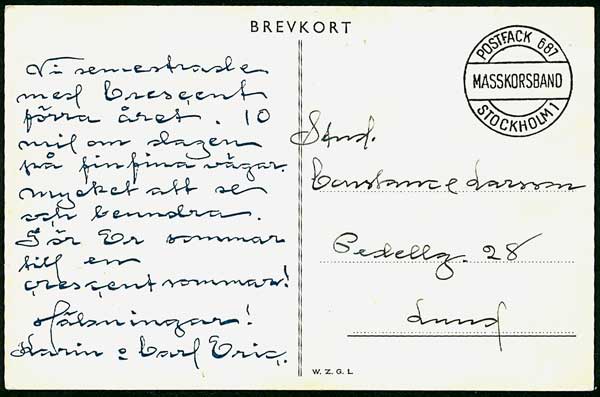 BREVKORT
Vi semestrade
med Crescent
förra året. 10
mil om dagen
på finfina vägar.
mycket att se
och beundra.
Gör Er sommar
till en
crescentsommar!
Hälsningar!
Karin o Carl Eric.
POSTFACK 687
MASSKORSBAND
STOCKHOLM 1
Stud.
Constance Larsson
Pedellg. 28
Lund
W. Z. G. L.